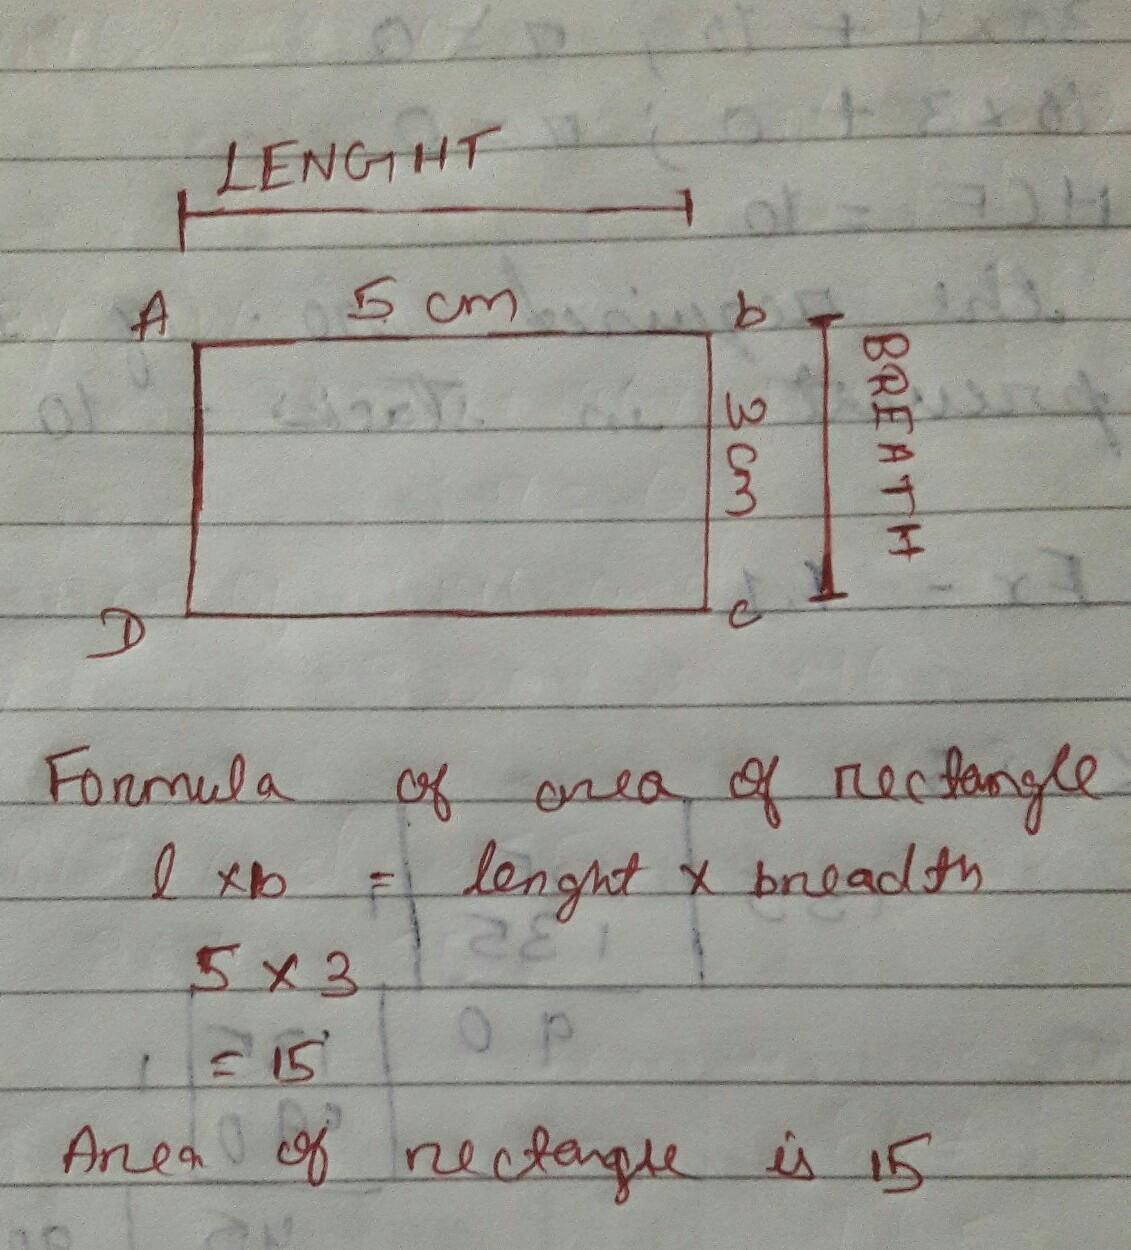 LENGHT
5 cm
A
b
3 cm
BREATH
D
c
Formula of area of rectangle
l x b = lenght x breadth
5 x 3
= 15
Area of rectangle is 15